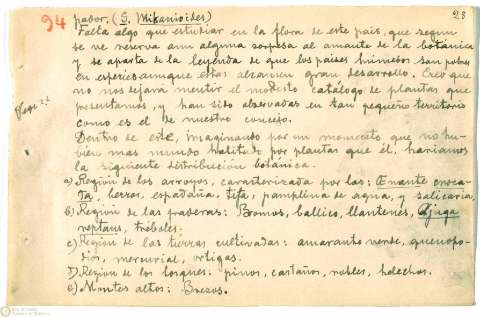 94
23
pador. (S. Mikanioides)
Falta algo que estudiar en la flora de este pais, que segun
se ve reserva aun alguna sorpresa al amante de la botánica
y se aparta de la leyenda de que los países húmedos son pobres
en especies aunque estas alcancen gran desarrollo. Creo que
no nos dejará mentir el modesto catálogo de plantas que
presentamos, y han sido observadas en tan pequeño territorio
como es el de nuestro concejo.
Dentro de este, imaginando por un momento que no hu-
biera mas mundo habitado por plantas que él, haríamos
la siguiente distribución botánica.
a) Región de los arroyos, caracterizada por las: Enante croca-
ta, berros, espadaña, tifa, pamplina de agua, y salicaria
b) Región de las praderas: Bromos, ballico, llantenes, Ajuga
reptans, tréboles.
c) Región de las tierras cultivadas: amaranto verde, quenopo-
dios, mercurial, ortigas.
D) Región de los bosques: pinos, castaños, robles, helechos.
e) Montes altos: Brezos.